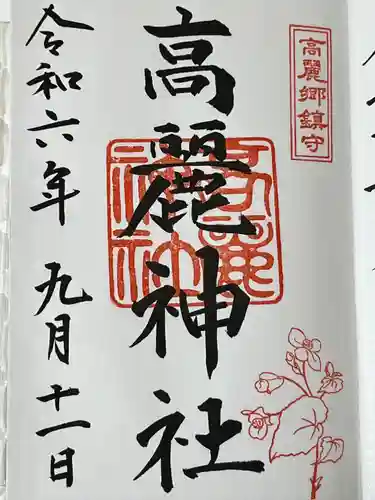 高麗郷鎮守
高麗神社
令和六年 九月十一日